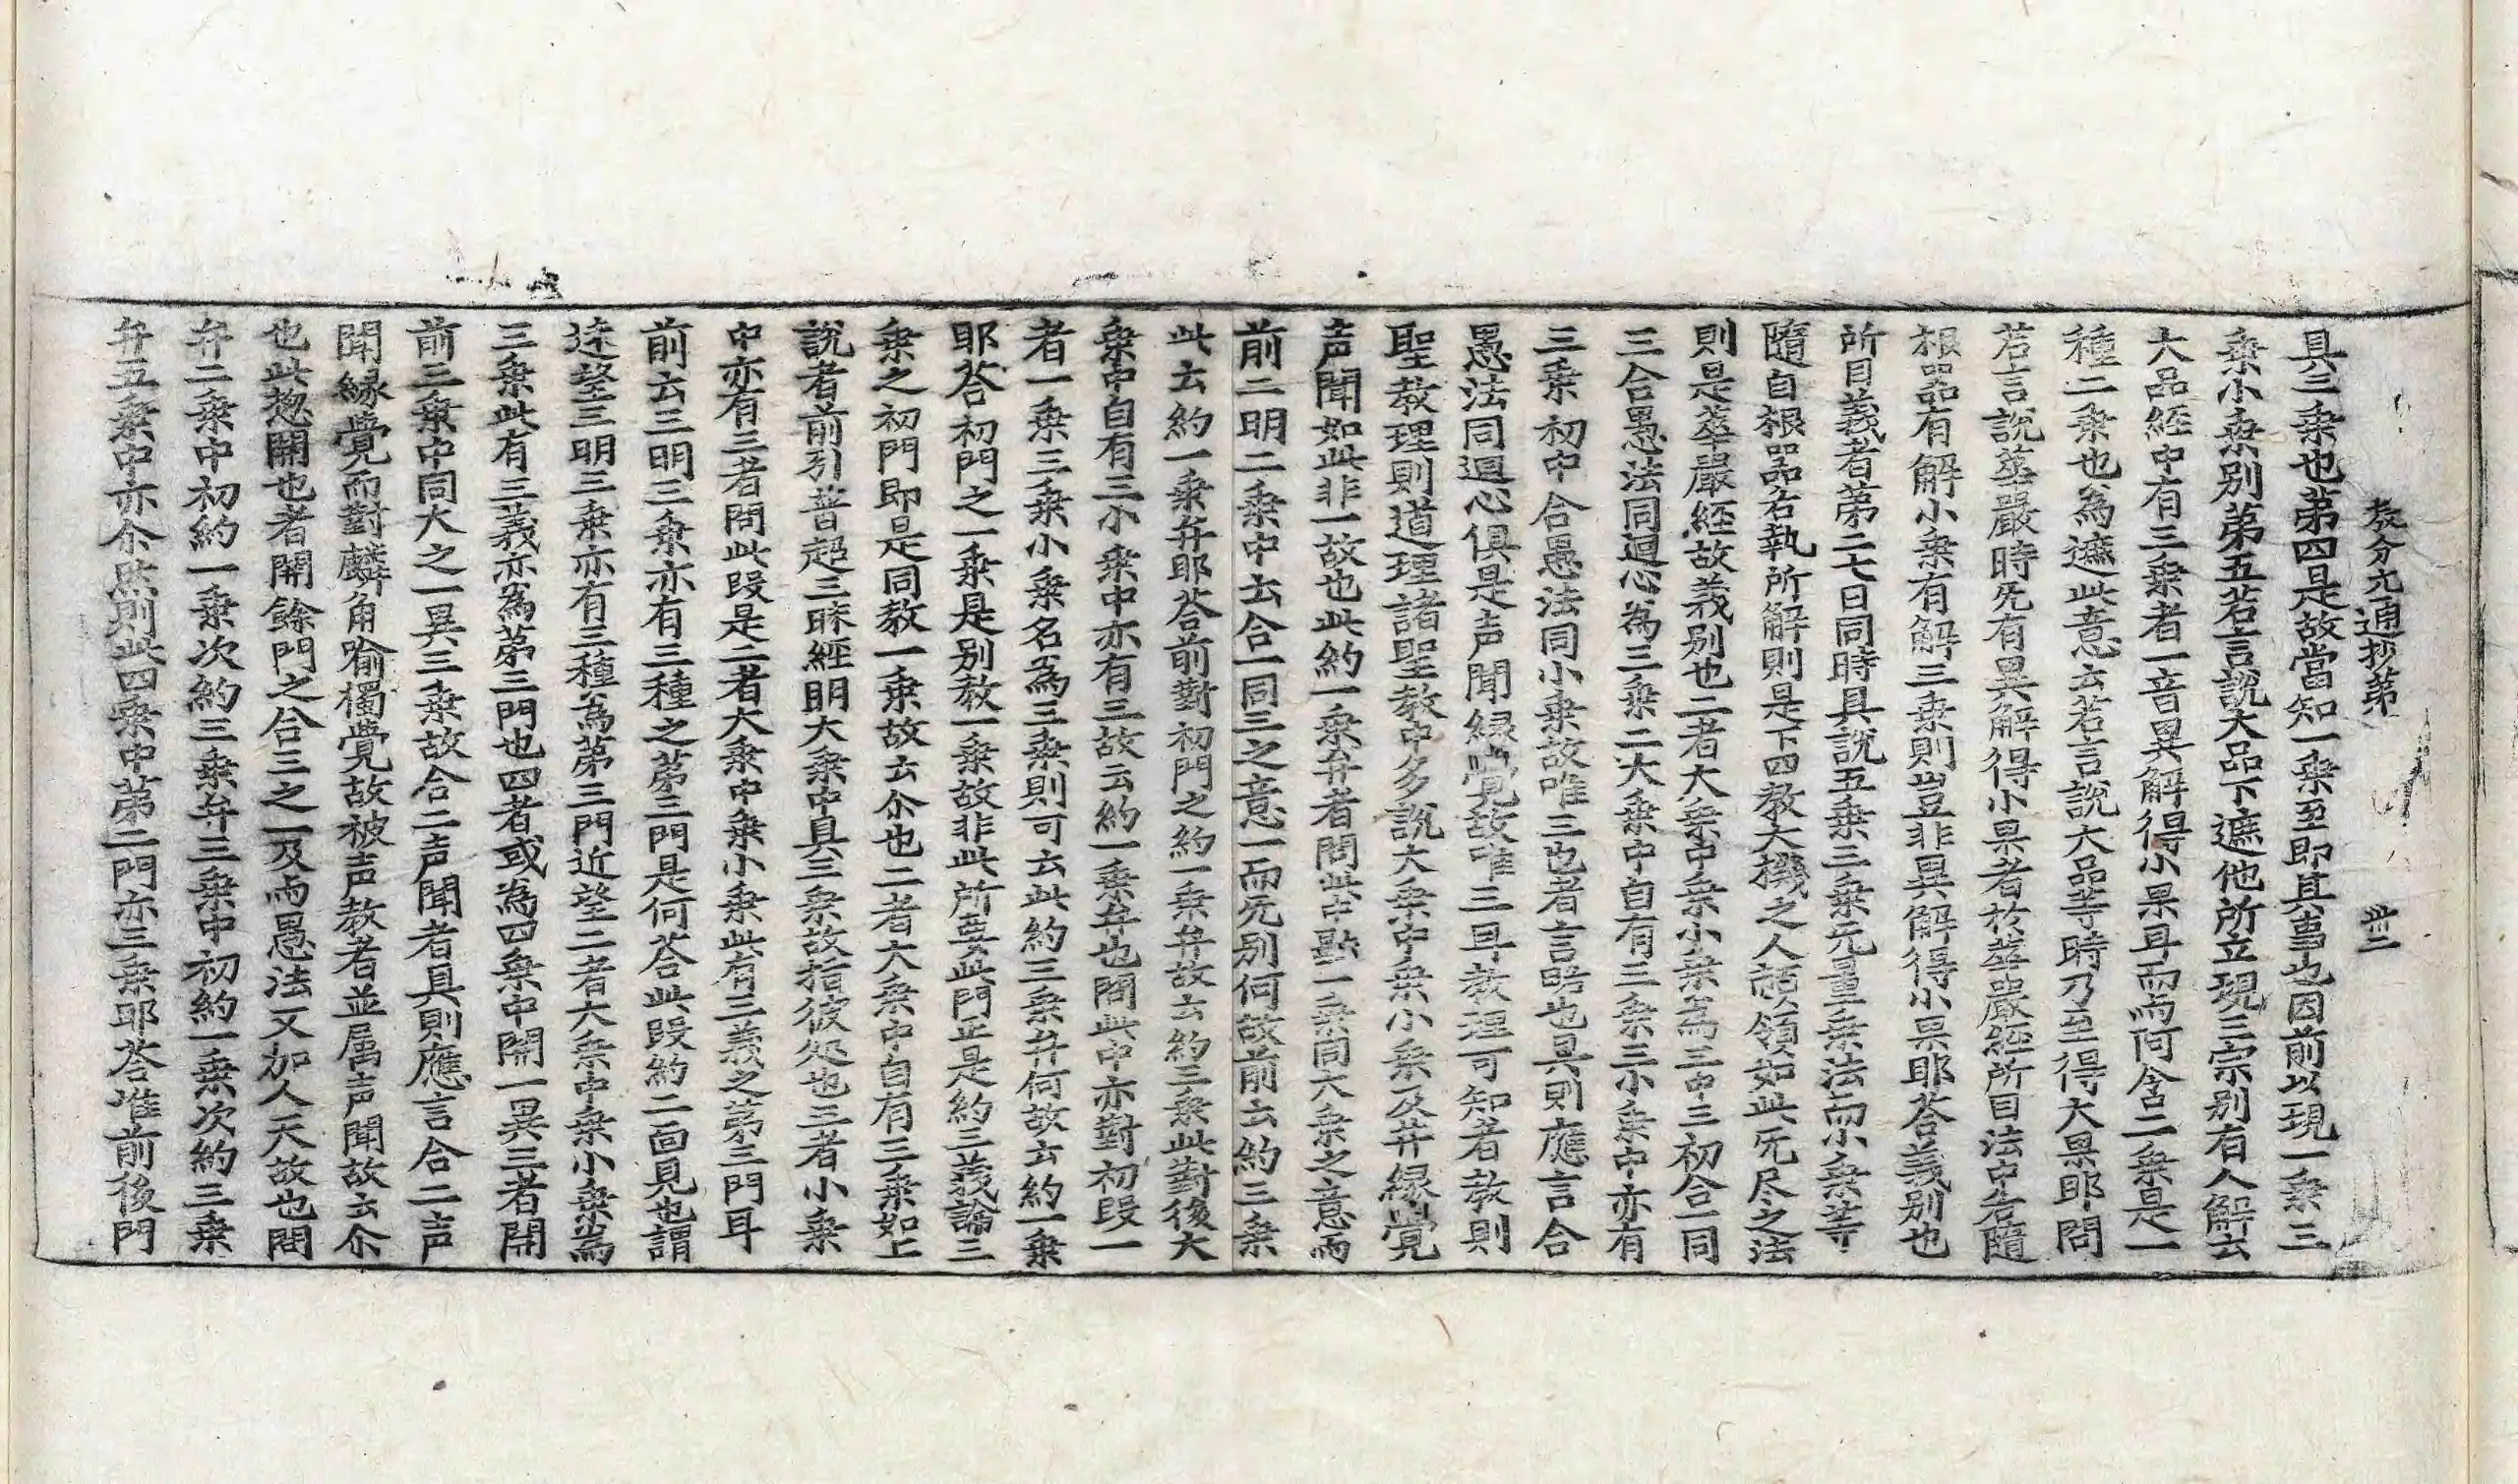 教分九通抄第　　卅二
具三乗也第四是故當知一乗至即其事也因前以現一乗三
乗小乗別第五若言說大品下遮他所立現三宗別有人解云
大品經中有三乗者一音異解得小果耳而与阿含二乗是一
種二乗也為遮此意云若言說大品等時乃至得大果耶問
若言說華嚴時旡有異解得小果者於華嚴經所目法中若隨
根器有解小乗有解三乗則豈非異解得小果耶荅義別也
所目義者第二七日同時具說五乗三乗无量乗法而小乗等
隨自根器名執所解則是下四教大機之人詺領如此旡尽之法
則是華嚴經故義別也二者大乗中乗小乗為三中三初合一同
三合愚法同迴心為三乗二大乗中自有三乗三小乗中亦有
三乗初中合愚法同小乗故唯三也者言略也具則應言合
愚法同迴心俱是声聞縁覺故唯三耳教理可知者教則
聖教理則道理諸聖教中多說大乗中乗小乗及并縁覺
声聞如此非一故也此約一乗弁者問此中二乗同大乗之意而
前二明二乗中云合一同三之意一而旡別何故前云約三乗
此云約一乗弁耶荅前對初門之約一乗弁故云約三乗此對後大
乗中自有三小乗中亦有三故云約一乗弁也問此中亦對初段一
者一乗三乗小乗名為三乗則可云此約三乗弁何故云約一乗
耶荅初門之一乗是別教一乗故非此所要此門正是約三義論三
乗之初門即是同教一乗故云尒也二者大乗中自有三乗如上
說者前引普超三昧經明大乗中具三乗故指彼処也三者小乗
中亦有三者問此段是二者大乗中乗小乗此有三義之第三門耳
前云三明三乗亦有三種之第三門是何荅此段約二面見也謂
逺望三明三乗亦有三種為第三門近望二者大乗中乗小乗為
三乗此有三義亦為第三門也四者或為四乗中開一異三者開
前三乗中同大之一異三乗故合二声聞者具則應言合二声
聞縁覺而對麟角喻獨覺故被声教者並属声聞故云尒
也此惣開也者開餘門之合三之一及而愚法又加人天故也問
弁二乗中初約一乗次約三乗弁三乗中初約一乗次約三乗
弁五乗中亦尒然則此四乗中第二門亦三乗耶荅唯前後門